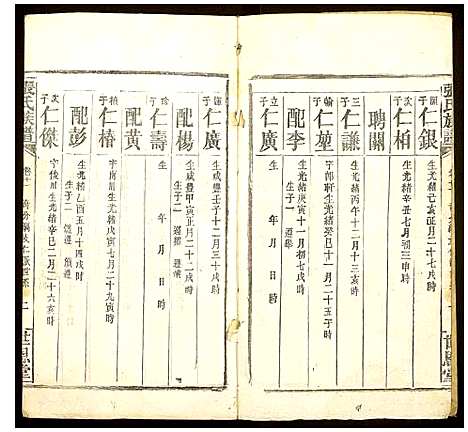 張氏族譜
仁銀
生光緒己亥正月二十七戌時
次子
仁柏
生光緒辛丑七月初三申時
聘關
三子
仁謙
生光緒丙午十二月十三亥時
仁堃
字部軒生光緒癸巳十一月二十五子時
配李
生光緒庚寅十一月初七戌時
生子一
立子
仁廣
生 年 月 日 時
仁廣
生咸豐壬子十二月三十戌時
配楊
生咸豐甲寅正月二十二戌時
生子二
仁壽
生 年 月 日 時
配黃
仁椿
字南屏生光緒戊寅七月二十九寅時
配彭
生光緒乙酉五月十四戌時
生子二
次子
仁傑
字俊川生光緒辛巳二月二十六亥時
張氏族譜
世恩堂